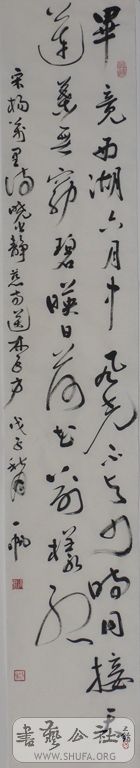 畢竟西湖六月中風光不與四時同接天
蓮葉無窮碧暎日荷花別樣紅
宋楊萬里詩曉出静慈寺送林子方 戊子秋月 一帆
書藝公社
WWW.SHUFA.ORG